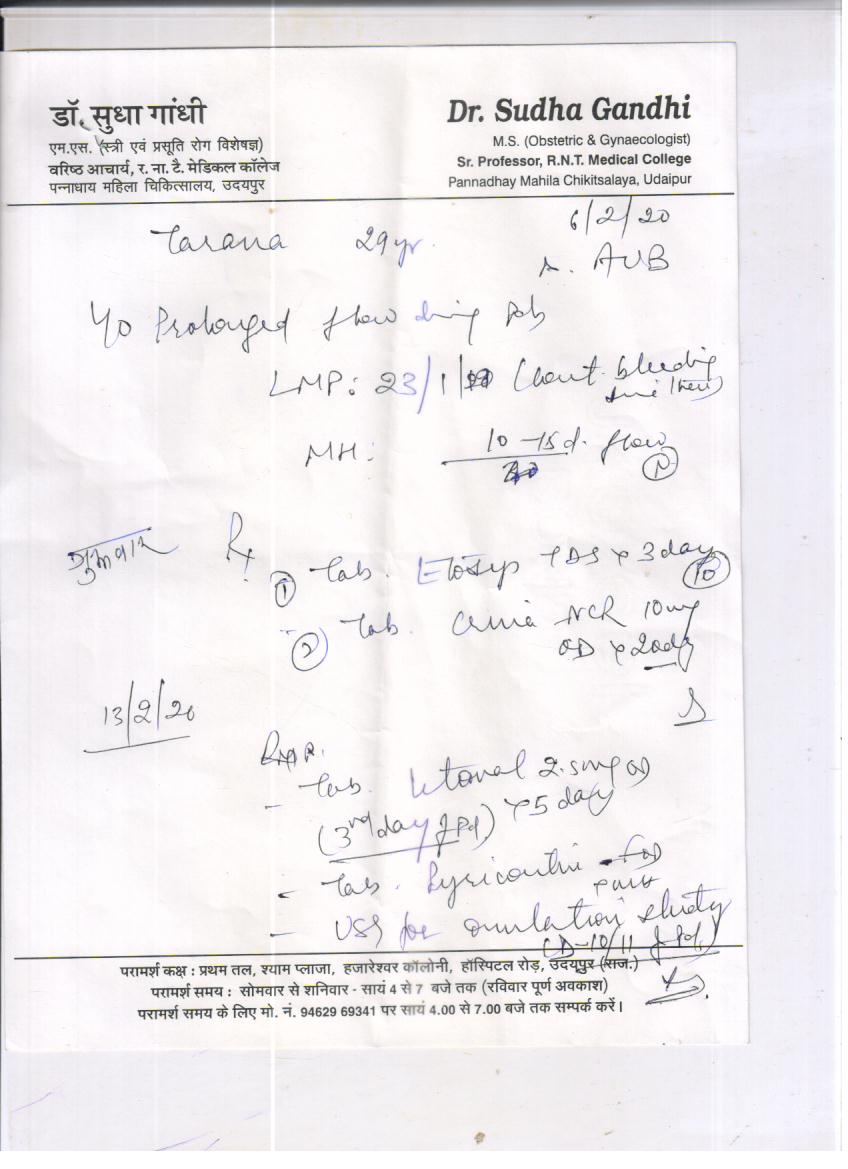 डॉ. सुधा गांधी
एम.एस. (स्त्री एवं प्रसूति रोग विशेषज्ञ)
वरिष्ठ आचार्य, र. ना. टै. मेडिकल कॉलेज
पन्नाधाय महिला चिकित्सालय, उदयपुर
Dr. Sudha Gandhi
M.S. (Obstetric & Gynaecologist)
Sr. Professor, R.N.T. Medical College
Pannadhay Mahila Chikitsalaya, Udaipur
6/2/20
Tarana 29 yr.
AUB
Prolonged flow during
LMP: 23/1/ (cont. bleeding
since then)
MH: 10-15 d. flow
N
Rx
① Tab. TDS x 3 day
10
② Tab. NCR 10mg
OD x 20 day
13/2/20
- Tab. 2.5mg OD
(3rd day of Pd.) x 5 day
- Tab. OD
- USG for ovulation study
(D-10/11 of Pd.)
परामर्श कक्ष : प्रथम तल, श्याम प्लाजा, हजारेश्वर कॉलोनी, हॉस्पिटल रोड़, उदयपुर (राज.)
परामर्श समय : सोमवार से शनिवार - सायं 4 से 7 बजे तक (रविवार पूर्ण अवकाश)
परामर्श समय के लिए मो. नं. 94629 69341 पर सायं 4.00 से 7.00 बजे तक सम्पर्क करें।